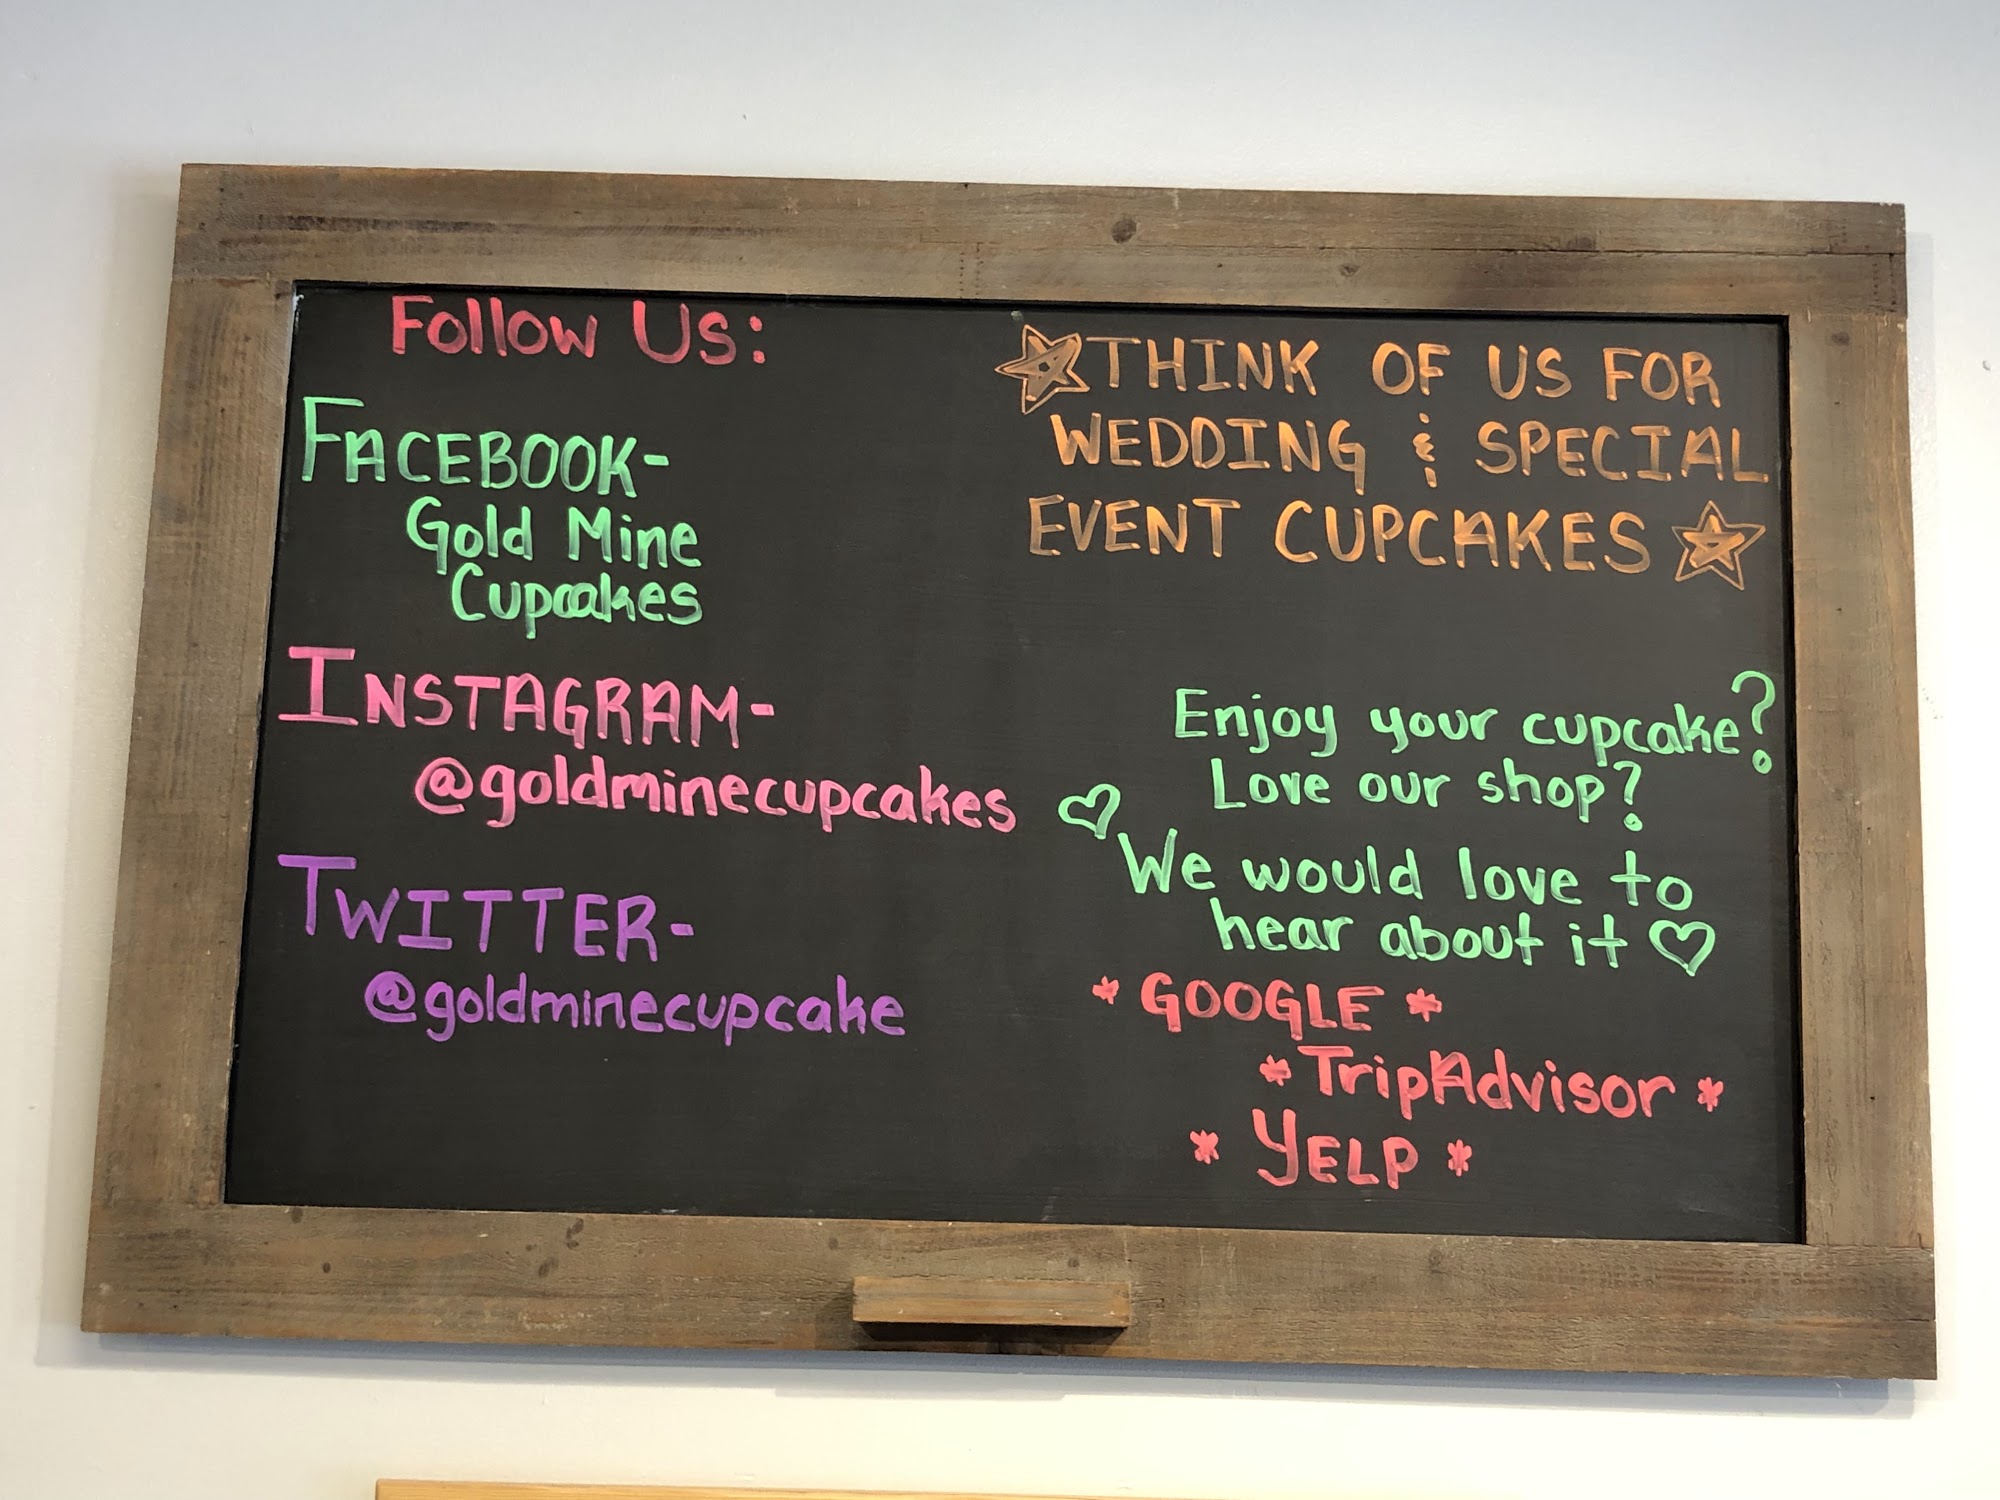 Follow Us:
FACEBOOK-
Gold Mine
Cupcakes
INSTAGRAM-
@goldminecupcakes
TWITTER-
@goldminecupcake
THINK OF US FOR
WEDDING & SPECIAL
EVENT CUPCAKES
Enjoy your cupcake?
Love our shop?
We would love to
hear about it
* GOOGLE *
* TripAdvisor *
* YELP *